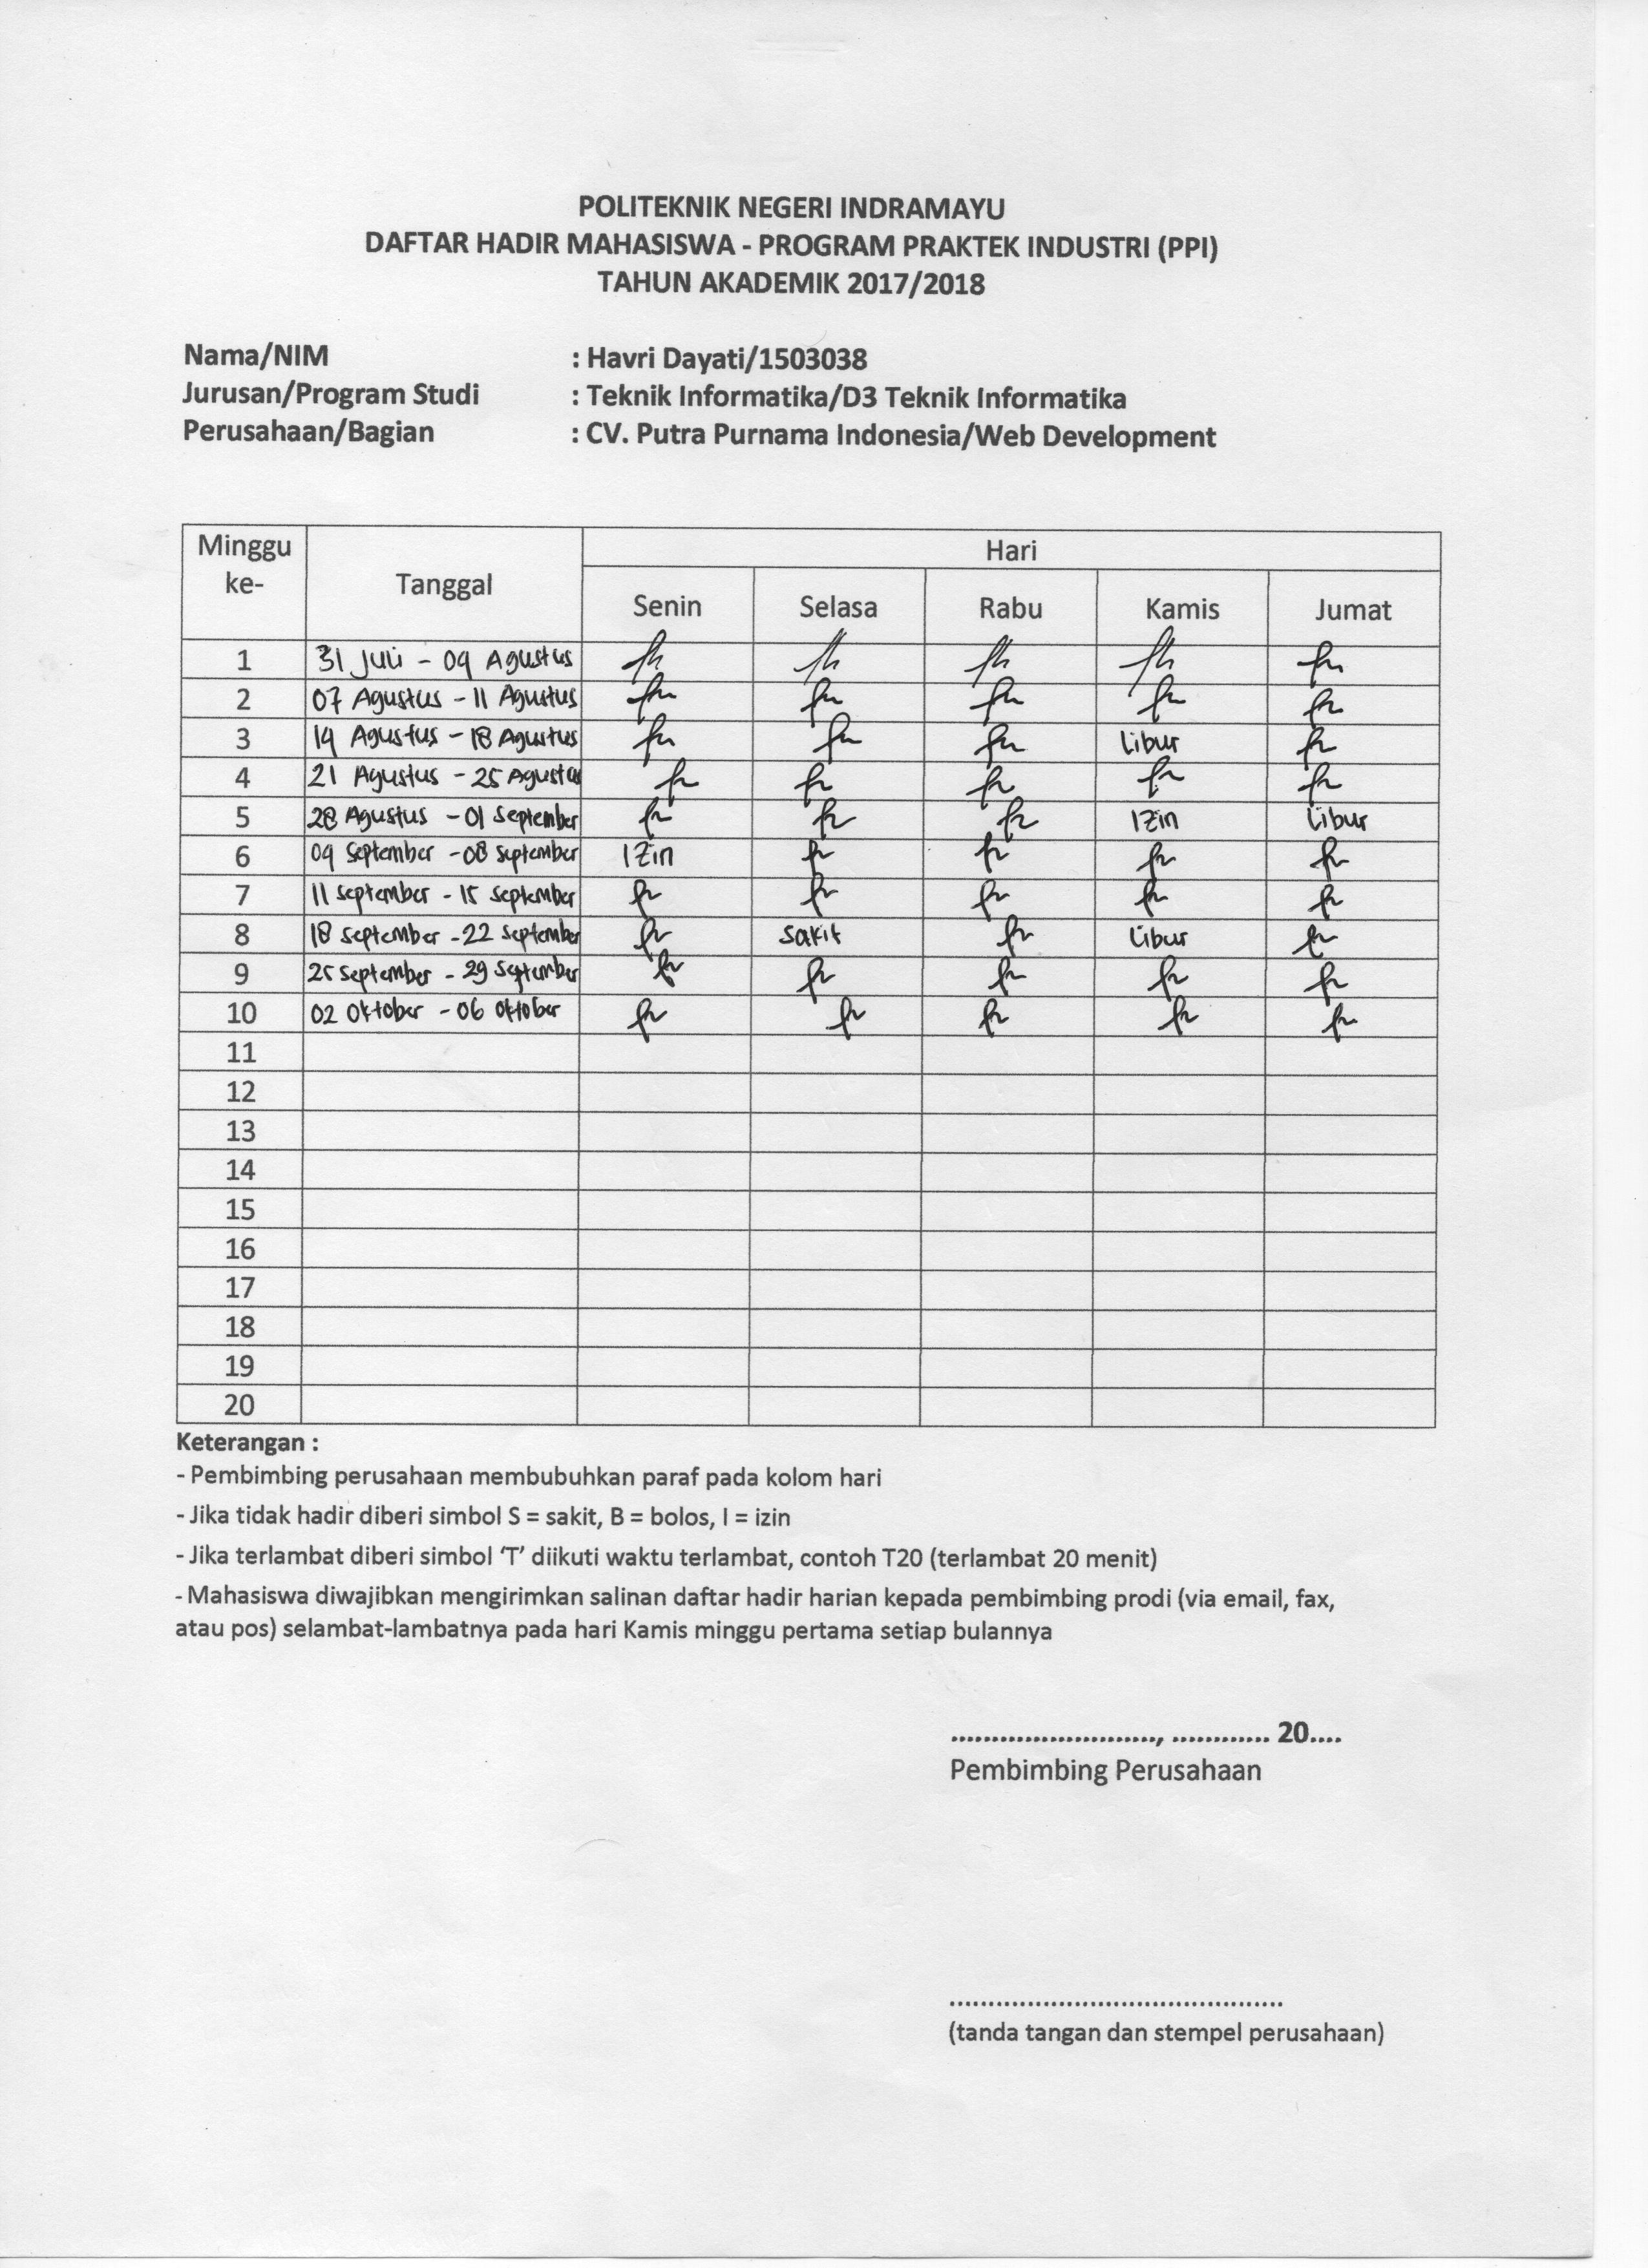 POLITEKNIK NEGERI INDRAMAYU
DAFTAR HADIR MAHASISWA - PROGRAM PRAKTEK INDUSTRI (PPI)
TAHUN AKADEMIK 2017/2018
Nama/NIM : Havri Dayati/1503038
Jurusan/Program Studi : Teknik Informatika/D3 Teknik Informatika
Perusahaan/Bagian : CV. Putra Purnama Indonesia/Web Development
Minggu ke- Tanggal Hari
Senin Selasa Rabu Kamis Jumat
1 31 Juli - 04 Agustus
2 07 Agustus - 11 Agustus
3 14 Agustus - 18 Agustus Libur
4 21 Agustus - 25 Agustus
5 28 Agustus - 01 September Izin Libur
6 04 September - 08 September Izin
7 11 September - 15 September
8 18 September - 22 September Sakit Libur
9 25 September - 29 September
10 02 Oktober - 06 Oktober
11
12
13
14
15
16
17
18
19
20
Keterangan :
- Pembimbing perusahaan membubuhkan paraf pada kolom hari
- Jika tidak hadir diberi simbol S = sakit, B = bolos, I = izin
- Jika terlambat diberi simbol ‘T’ diikuti waktu terlambat, contoh T20 (terlambat 20 menit)
- Mahasiswa diwajibkan mengirimkan salinan daftar hadir harian kepada pembimbing prodi (via email, fax,
atau pos) selambat-lambatnya pada hari Kamis minggu pertama setiap bulannya
........................., ............ 20....
Pembimbing Perusahaan
...........................................
(tanda tangan dan stempel perusahaan)